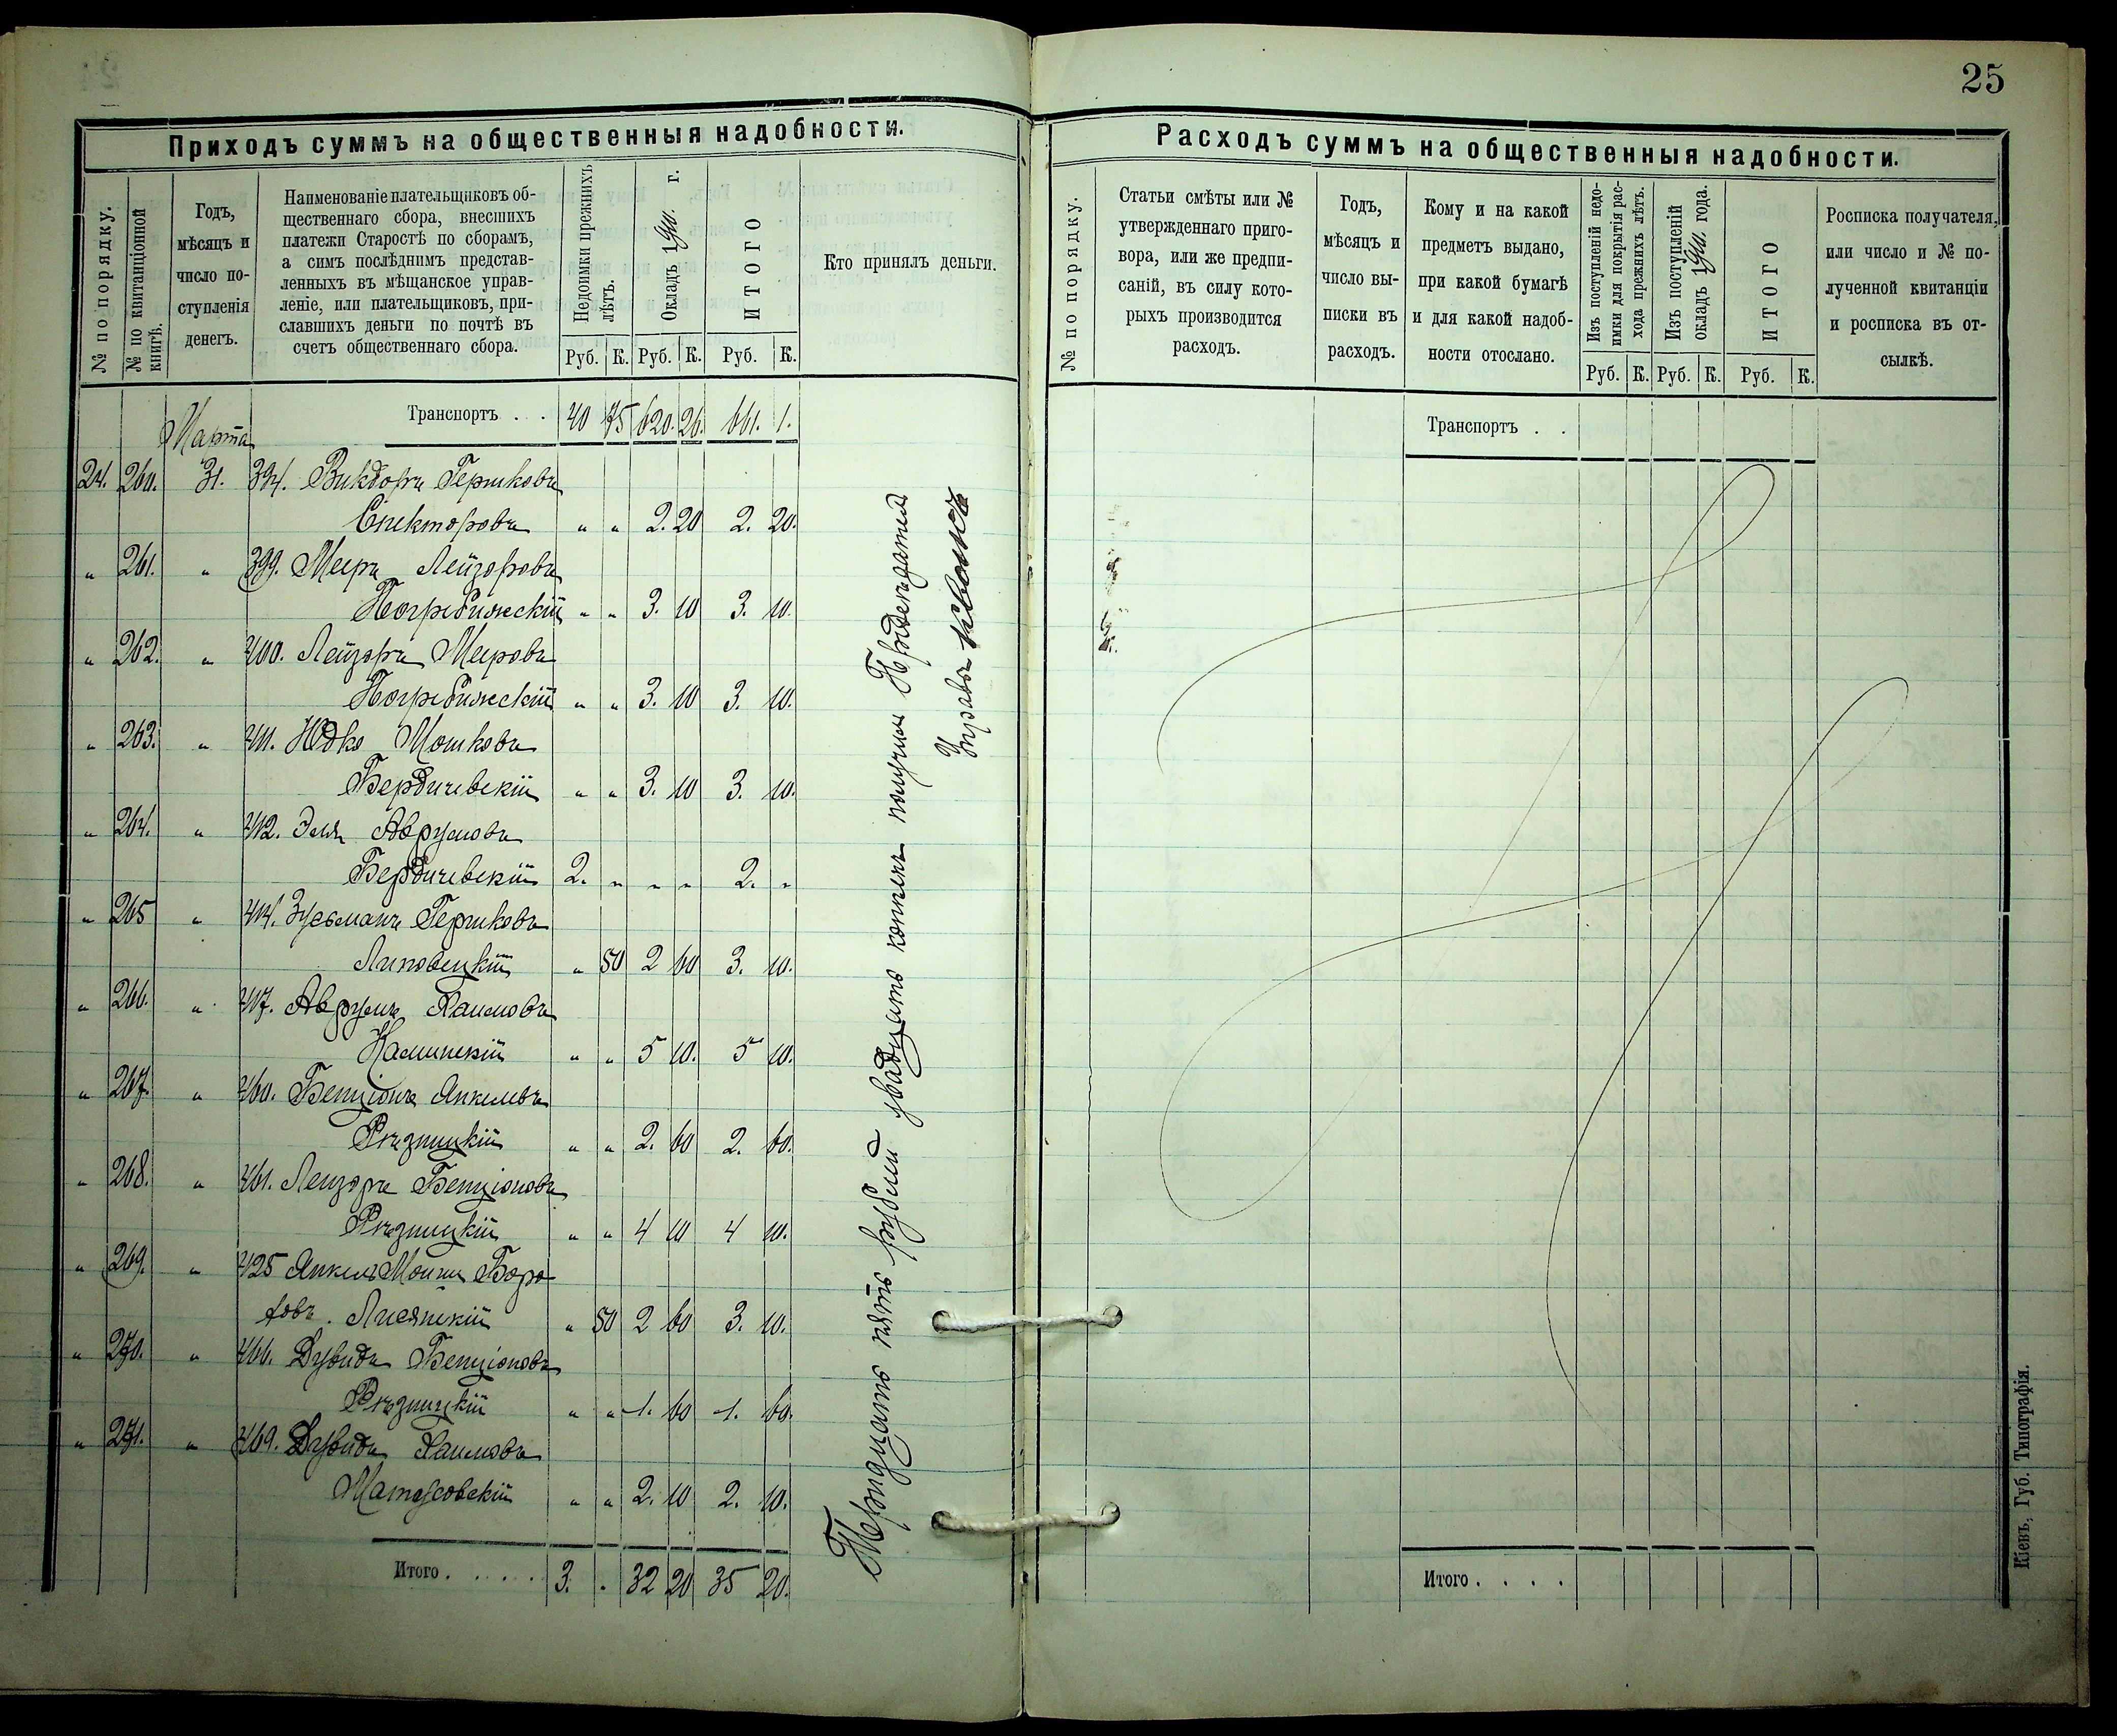 25
Приходъ суммъ на общественныя надобности.
№ по порядку.
№ по квитанціонной книгѣ.
Годъ, мѣсяцъ и число поступленія денегъ.
Наименованіе плательщиковъ об-
щественнаго сбора, внесшихъ
платежи Старостѣ по сборамъ,
а симъ послѣднимъ представ-
ленныхъ въ мѣщанское управ-
леніе, или плательщиковъ, при-
славшихъ деньги по почтѣ въ
счетъ общественнаго сбора.
Недоимки прежнихъ лѣтъ.
Окладъ г.
ИТОГО
Кто принялъ деньги.
Руб. К. Руб. К. Руб. К.
Транспортъ . . 40 75 620. 26. 661. 1.
Марта
24. 260. 31. 394. Викдоръ Гершковъ
Спекторовъ " " 2. 20 2. 20.
" 261. " 399. Мееръ Лейзоровъ
Погребижскій " " 3. 10 3. 10.
" 262. " 400. Лейзоръ Меировъ
Погребижскій " " 3. 10 3. 10.
" 263. " 411. Юдко Мошковъ
Бердичевскій " " 3. 10 3. 10.
" 264. " 412. Эля Аврумовъ
Бердичевскій 2. " " " 2. "
" 265 " 414. Зусьманъ Гершковъ
Липовецкій " 50 2 60 3. 10.
" 266. " 417. Аврумъ Хаимовъ
Каминскій " " 5 10. 5 10.
" 267. " 460. Бенціонъ Янкелевъ
Рѣзницкій " " 2. 60 2. 60.
" 268. " 461. Лейзоръ Бенціоновъ
Рѣзницкій " " 4 10 4 10.
" 269. " 425 Янкель Мошки Боро-
ховъ. Лисянскій " 50 2 60 3. 10.
" 270. " 466. Дувидъ Бенціоновъ
Рѣзницкій " " 1. 60 1. 60.
" 271. " 469. Дувидъ Хаимовъ
Матусовскій " " 2. 10 2. 10.
Итого . . . . . 3. . 32 20 35 20.
Тридцать пять рублей двадцать копѣекъ получилъ Предсѣдатель
Управы
Расходъ суммъ на общественныя надобности.
№ по порядку.
Статьи смѣты или №
утвержденнаго приго-
вора, или же предпи-
саній, въ силу кото-
рыхъ производится
расходъ.
Годъ,
мѣсяцъ и
число вы-
писки въ
расходъ.
Кому и на какой
предметъ выдано,
при какой бумагѣ
и для какой надоб-
ности отослано.
Изъ поступленій недо-
имки для покрытія рас-
хода прежнихъ лѣтъ.
Изъ поступленій
окладъ года.
ИТОГО
Росписка получателя,
или число и № по-
лученной квитанціи
и росписка въ от-
сылкѣ.
Руб. К. Руб. К. Руб. К.
Транспортъ . .
Итого . . . .
Кіевъ, Губ. Типографія.